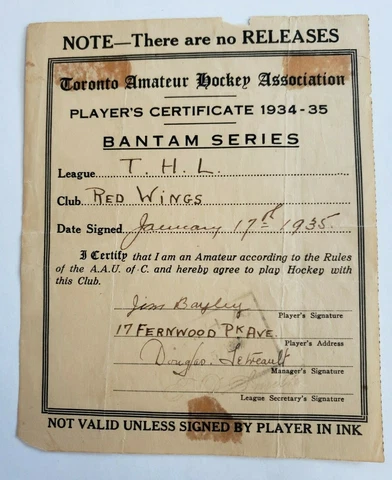 NOTE—There are no RELEASES
Toronto Amateur Hockey Association
PLAYER'S CERTIFICATE 1934-35
BANTAM SERIES
League T. H. L.
Club RED WINGS
Date Signed January 17th 1935.
I Certify that I am an Amateur according to the Rules
of the A.A.U. of C. and hereby agree to play Hockey with
this Club.
Jim Bayley
Player's Signature
17 FERNWOOD PK AVE.
Player's Address
Douglas
Manager's Signature
League Secretary's Signature
NOT VALID UNLESS SIGNED BY PLAYER IN INK